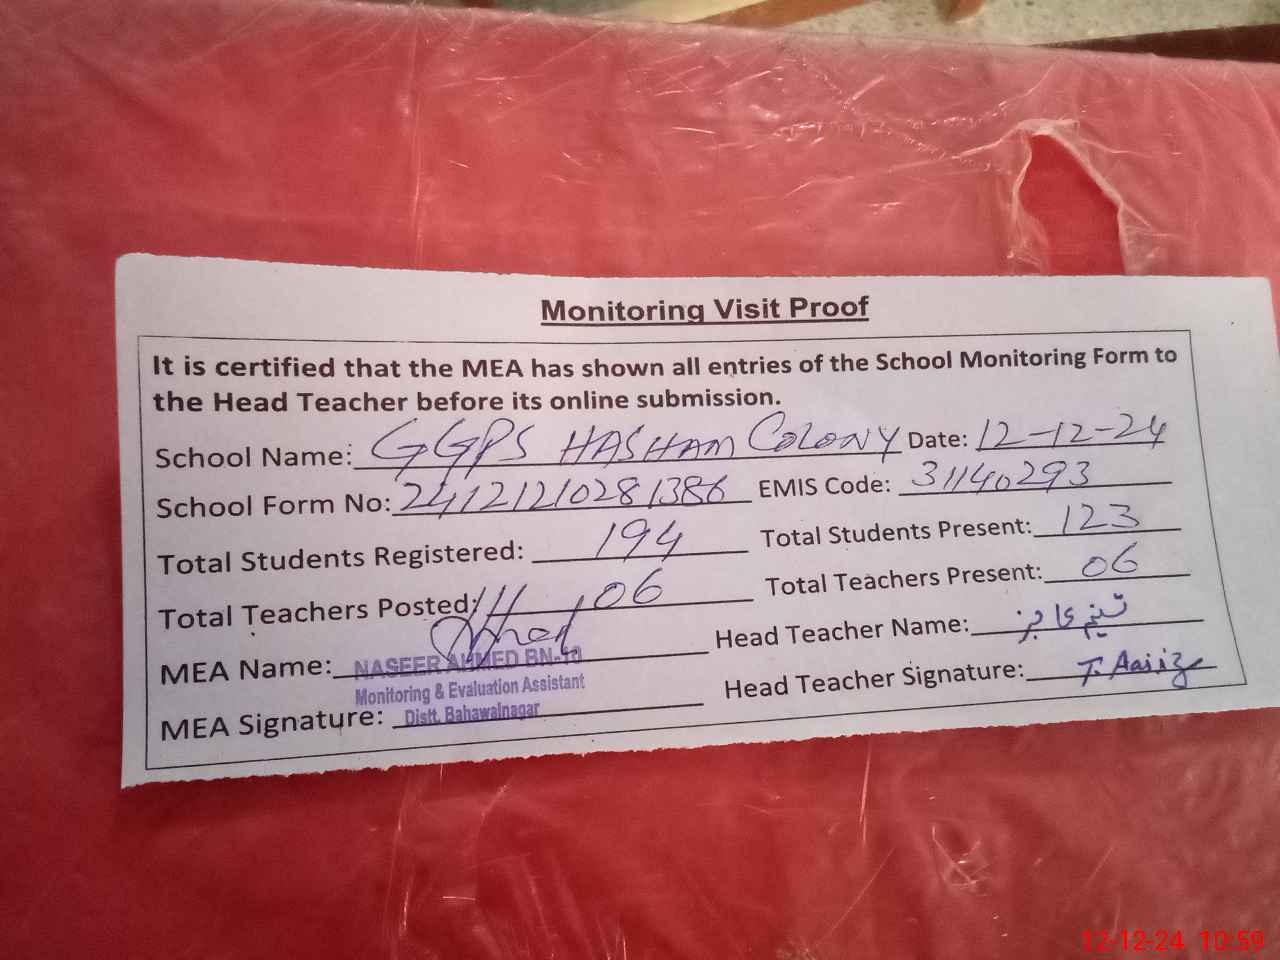 Monitoring Visit Proof
It is certified that the MEA has shown all entries of the School Monitoring Form to
the Head Teacher before its online submission.
School Name: GGPS HASHAM COLONY Date: 12-12-24
School Form No: 24121210281386 EMIS Code: 31140293
Total Students Registered: 194 Total Students Present: 123
Total Teachers Posted: 06 Total Teachers Present: 06
MEA Name: NASEER AHMED BN-10 Head Teacher Name:
Monitoring & Evaluation Assistant
MEA Signature: Distt. Bahawalnagar Head Teacher Signature: T. Aaiiz
12-12-24 10:59